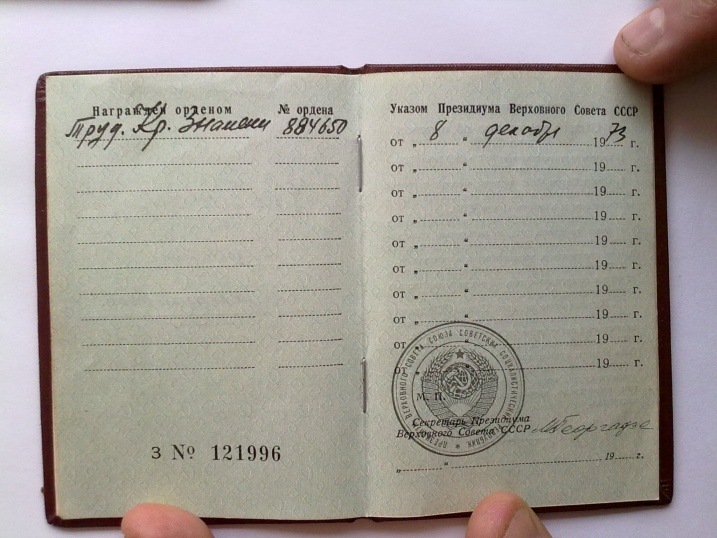 Награждён орденом № ордена
Труд. Кр. Знамени 884650
З № 121996
Указом Президиума Верховного Совета СССР
от „ 8 “ декабря 19 73 г.
от „ “ 19 г.
от „ “ 19 г.
от „ “ 19 г.
от „ “ 19 г.
от „ “ 19 г.
от „ “ 19 г.
от „ “ 19 г.
от „ “ 19 г.
от „ “ 19 г.
М. П.
Секретарь Президиума
Верховного Совета СССР МГеоргадзе
„ “ 19 г.